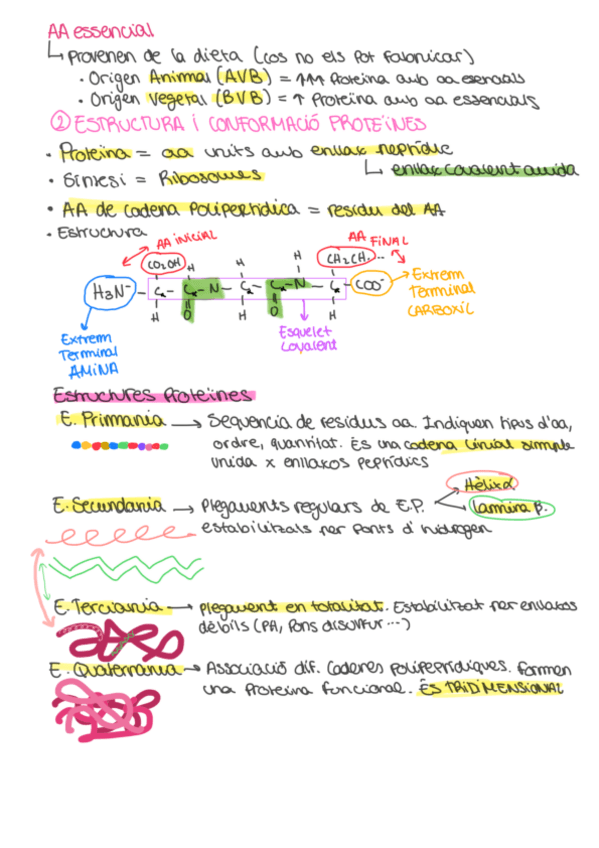 AA essencial
↳ Provenen de la dieta (cos no els pot fabricar)
· Origen Animal (AVB) = ↑↑↑ Proteïna amb aa esencials
· Origen Vegetal (BVB) = ↑ Proteïna amb aa essencials
② ESTRUCTURA i CONFORMACIÓ PROTEÏNES
· Proteïna = aa units amb enllaç peptídic
↳ enllaç covalent amida
· Síntesi = Ribosomes
· AA de cadena polipeptídica = residu del AA
· Estructura
AA iNiCiAL
AA FiNAL
CO2OH H H H CH2CH2...
H3N⁻ – C – C – N – C – C – N – C – COO⁻
H O H O H
Extrem Terminal AMiNA
Esquelet Covalent
Extrem Terminal CARBOXiL
Estructures Proteïnes
E. Primaria → Seqüència de residus aa. Indiquen tipus d'aa,
ordre, quantitat. És una cadena linial simple
unida x enllaços peptídics
E. Secundaria → Plegaments regulars de E.P.
Hèlix α
Lamina β.
estabilitzats per ponts d'hidrogen
E. Terciaria → Plegament en totalitat. Estabilitzat per enllaços
dèbils (PH, Pons disulfur...)
E. Quaternaria → Associació dif. Cadenes polipeptídiques. formen
una Proteïna funcional. ÉS TRiDiMENSiONAL